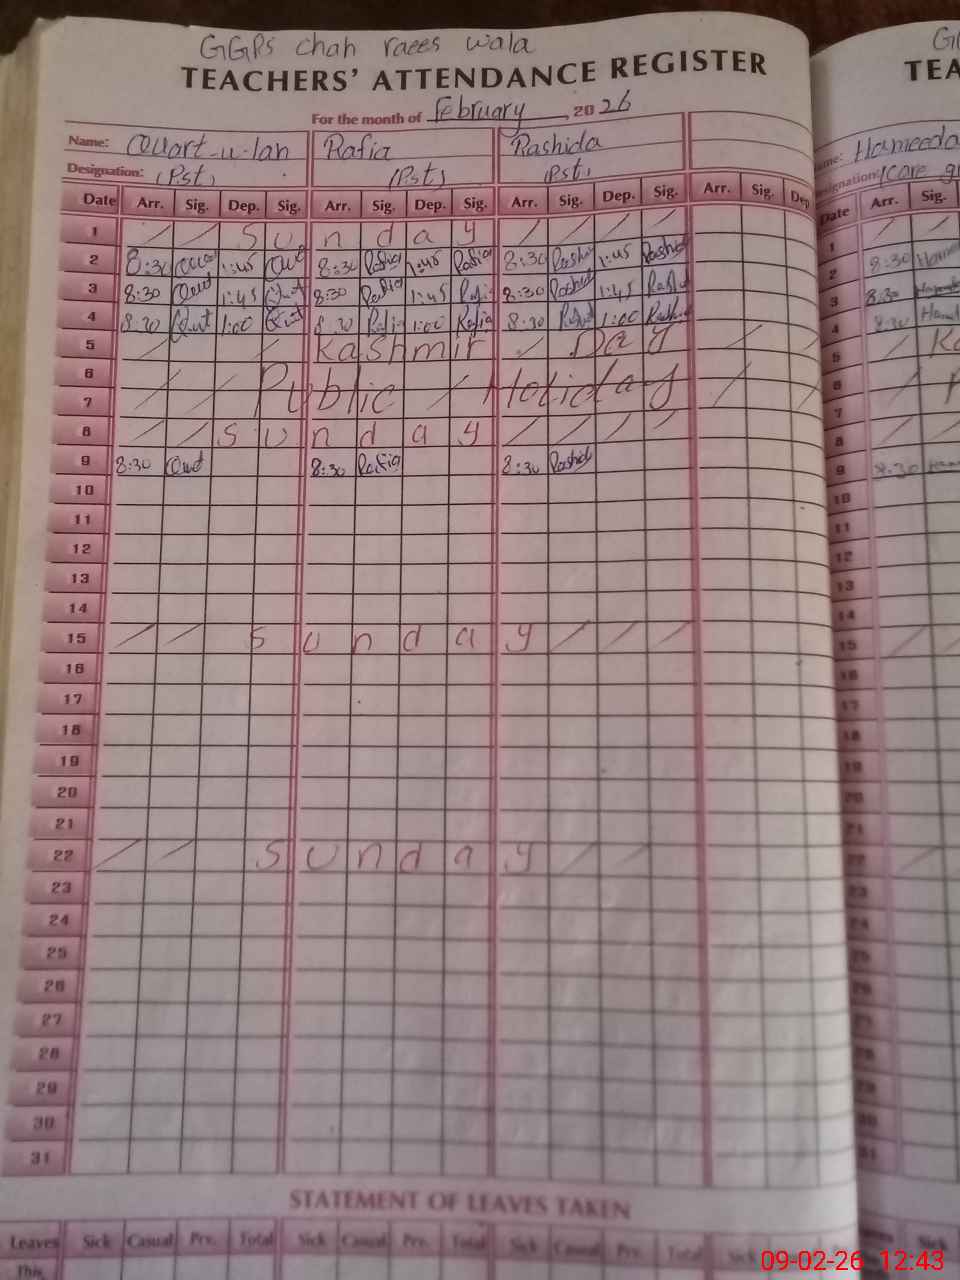 GGPS chah raees wala
TEACHERS' ATTENDANCE REGISTER
For the month of February, 2026
Name: Rafia Rashida
Designation: (Pst) (Pst) (Pst)
Date Arr. Sig. Dep. Sig. Arr. Sig. Dep. Sig. Arr. Sig. Dep. Sig. Arr. Sig. Dep.
1 Sunday
2 8:30 1:45 8:30 Rafia 1:45 Rafia 8:30 Rashid 1:45 Rashid
3 8:30 1:45 8:30 Rafia 1:45 Rafia 8:30 Rashid 1:45 Rashid
4 8:30 1:00 8:30 Rafia 1:00 Rafia 8:30 1:00 Rashid
5 Kashmir Day
6 Public Holiday
7
8 Sunday
9 8:30 8:30 Rafia 8:30 Rashid
10
11
12
13
14
15 Sunday
16
17
18
19
20
21
22 Sunday
23
24
25
26
27
28
29
30
31
STATEMENT OF LEAVES TAKEN
Leaves Sick Casual Prv. Total Sick Casual Prv. Total Sick Casual Prv. Total Sick
This
TEA
Hameeda
Date Arr. Sig.
1
2 8:30
3 8:30
4 8:30
5
6
7
8
9 8:30
10
11
12
13
14
15
16
17
18
19
20
21
22
23
24
25
31
Sick
09-02-26 12:43